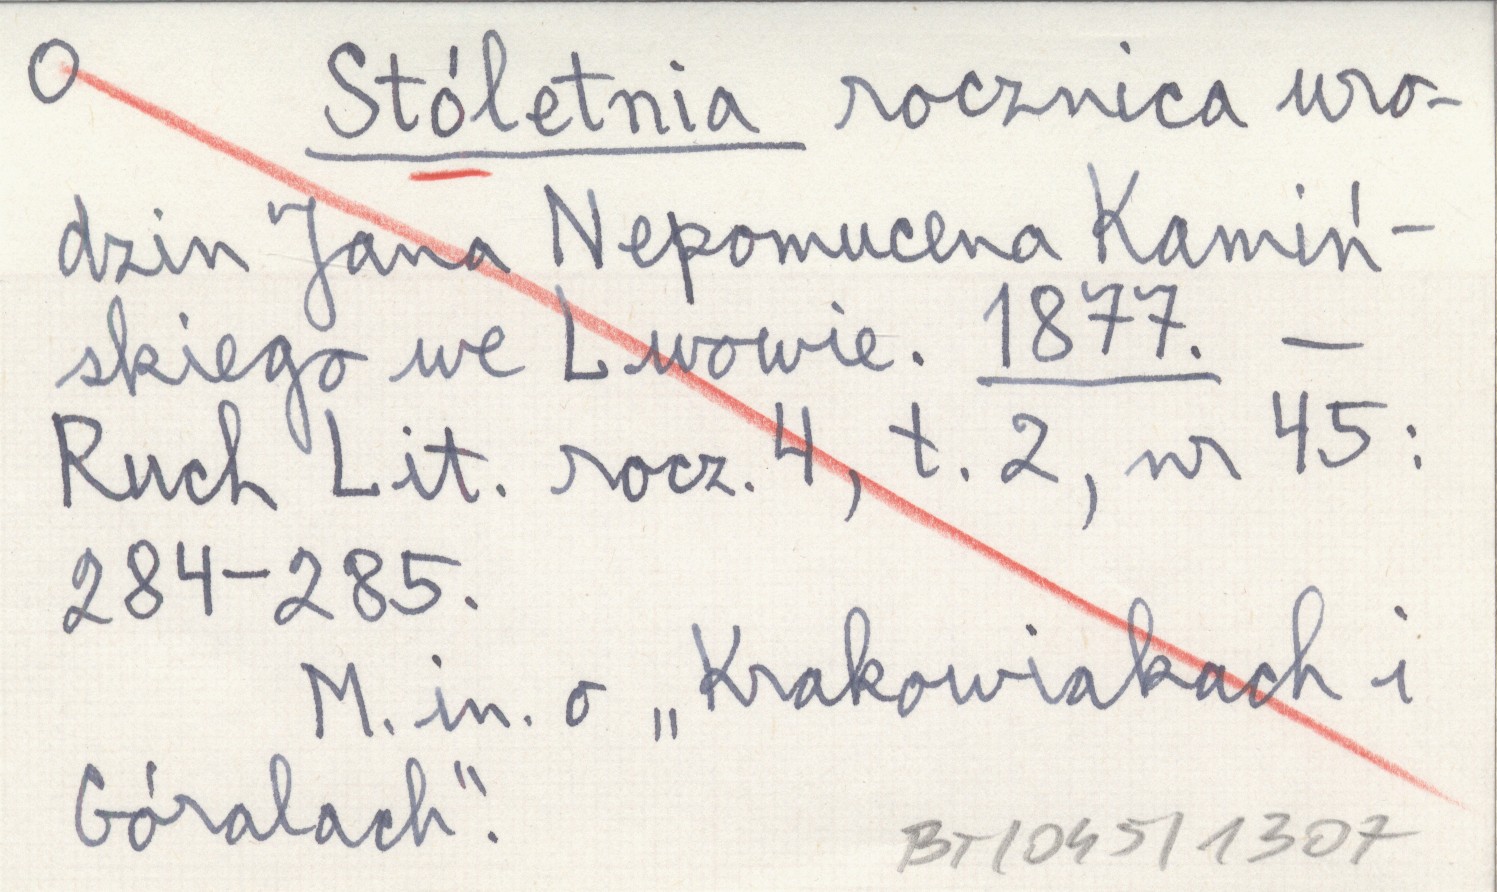 O Stóletnia rocznica uro-
dzin Jana Nepomucena Kamiń-
skiego we Lwowie. 1877. —
Ruch Lit. rocz. 4, t. 2, nr 45:
284-285.
M. in. o „Krakowiakach i
Góralach".
BT/045/1307